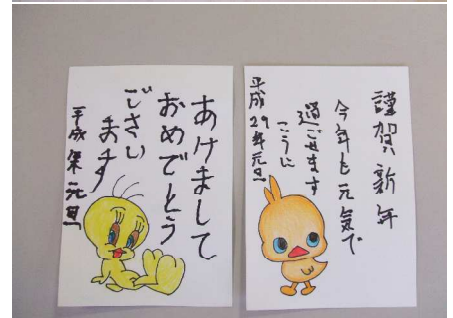 あけまして
おめでとう
ござい
ます
平成 元旦
謹賀新年
今年も元気で
過ごせます
ように
平成29年元旦